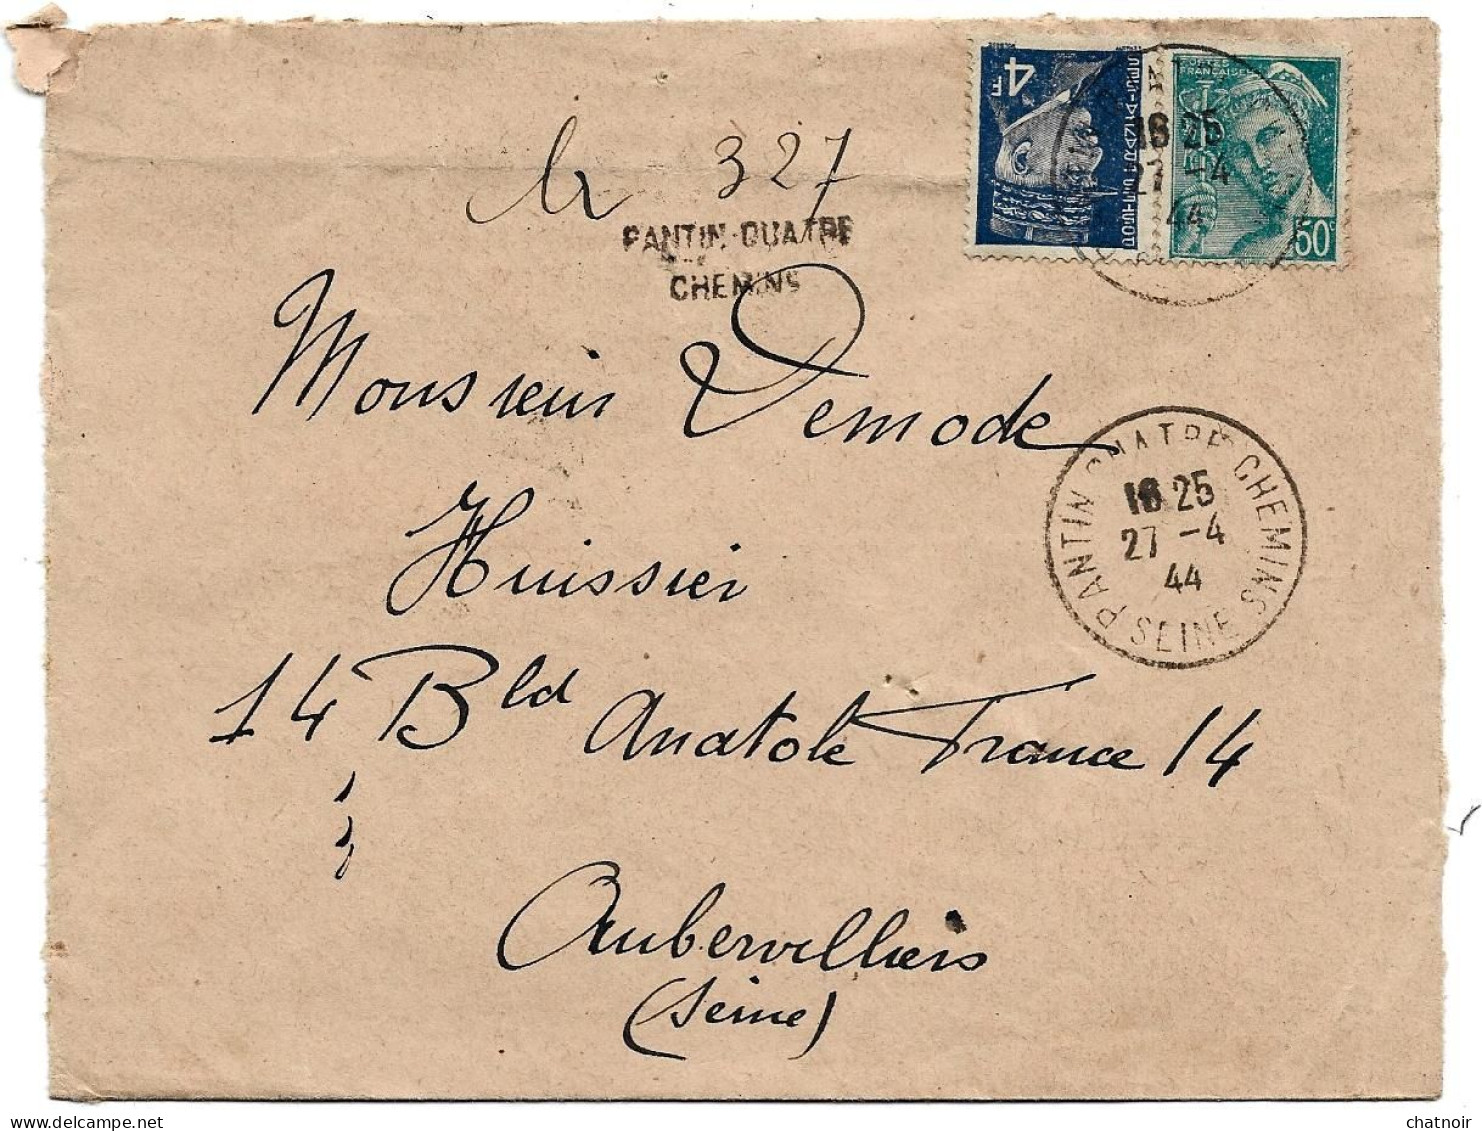 4F
POSTES FRANÇAISES
50c
16 25
27 -4
44
N 327
PANTIN-QUATRE
CHEMINS
Monsieur Demode
Huissier
14 Bld Anatole France 14
Aubervilliers
(Seine)
PANTIN QUATRE CHEMINS
16 25
27 -4
44
SEINE
chatnoir